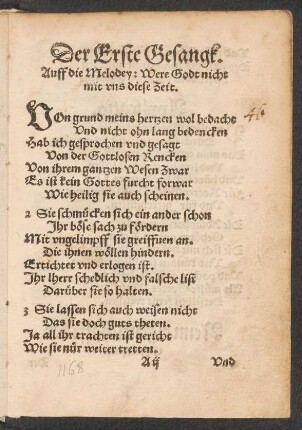 Der Erste Gesangk.
Auff die Melodey: Were Godt nicht
mit vns diese Zeit.
VOn grund meins hertzen wol bedacht
Vnd nicht ohn lang bedencken
Hab ich gesprochen vnd gesagt
Von der Gottlosen Rencken
Von ihrem gantzen Wesen zwar
Es ist kein Gottes furcht forwar
Wie heilig sie auch scheinen.
2 Sie schmücken sich ein ander schon
Ihr böse sach zu fördern
Mit vngelimpff sie greiffuen an.
Die ihnen wöllen hindern.
Ertichtet vnd erlogen ist.
Ihr lherr schedlich vnd falsche list
Darüber sie so halten.
3 Sie lassen sich auch weisen nicht
Das sie doch guts theten.
Ja all ihr trachten ist gericht
Wie sie nür weiter tretten.
A ij Vnd
1168